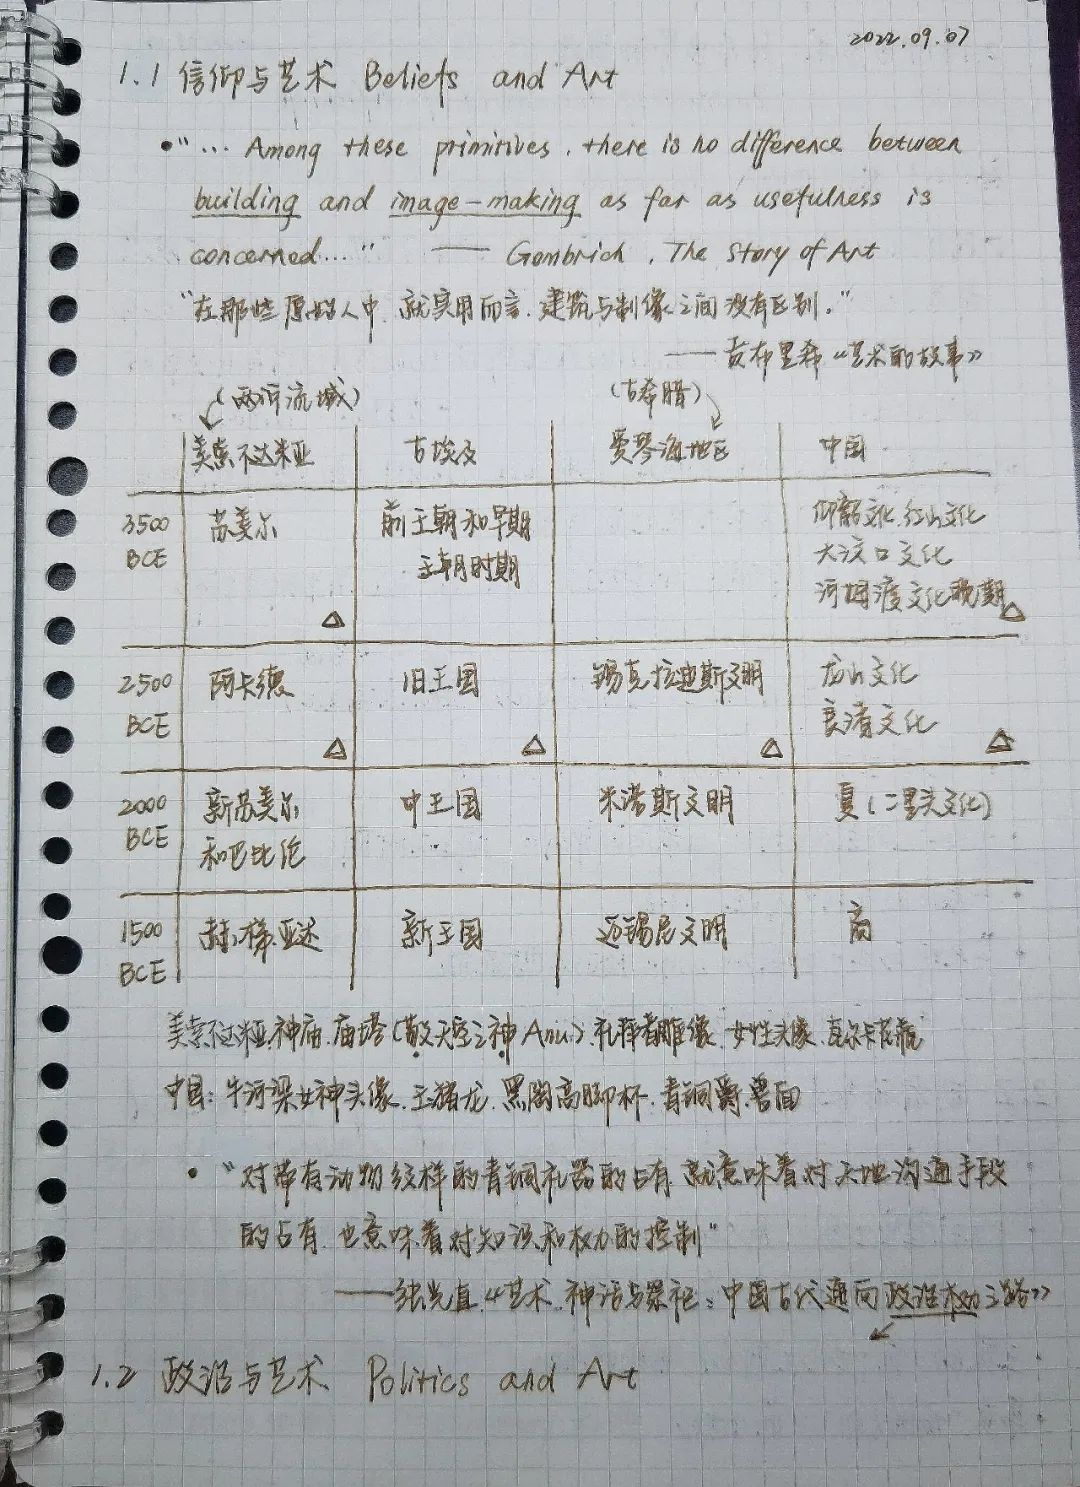 2022.09.07
1.1 信仰与艺术 Beliefs and Art
•"... Among these primitives, there is no difference between
building and image-making as far as usefulness is
concerned..." —— Gombrich, The Story of Art
"在那些原始人中,就实用而言,建筑与制像之间没有区别。"
——贡布里希《艺术的故事》
(两河流域) (古希腊)
美索不达米亚 古埃及 爱琴海地区 中国
3500 苏美尔 前王朝和早期 仰韶文化、红山文化
BCE 王朝时期 大汶口文化
河姆渡文化晚期△
△
2500 阿卡德 旧王国 锡克拉迪斯文明 龙山文化
BCE 良渚文化
△ △ △ △
2000 新苏美尔 中王国 米诺斯文明 夏(二里头文化)
BCE 和巴比伦
1500 赫梯、亚述 新王国 迈锡尼文明 商
BCE
美索不达米亚:神庙、庙塔(敬天空之神Anu)、礼拜者雕像、女性头像、瓦尔卡花瓶
中国:牛河梁女神头像、玉猪龙、黑陶高脚杯、青铜爵、兽面
• "对带有动物纹样的青铜礼器的占有,就意味着对天地沟通手段
的占有,也意味着对知识和权力的控制"
——张光直《艺术、神话与祭祀:中国古代通向政治权力之路》
1.2 政治与艺术 Politics and Art